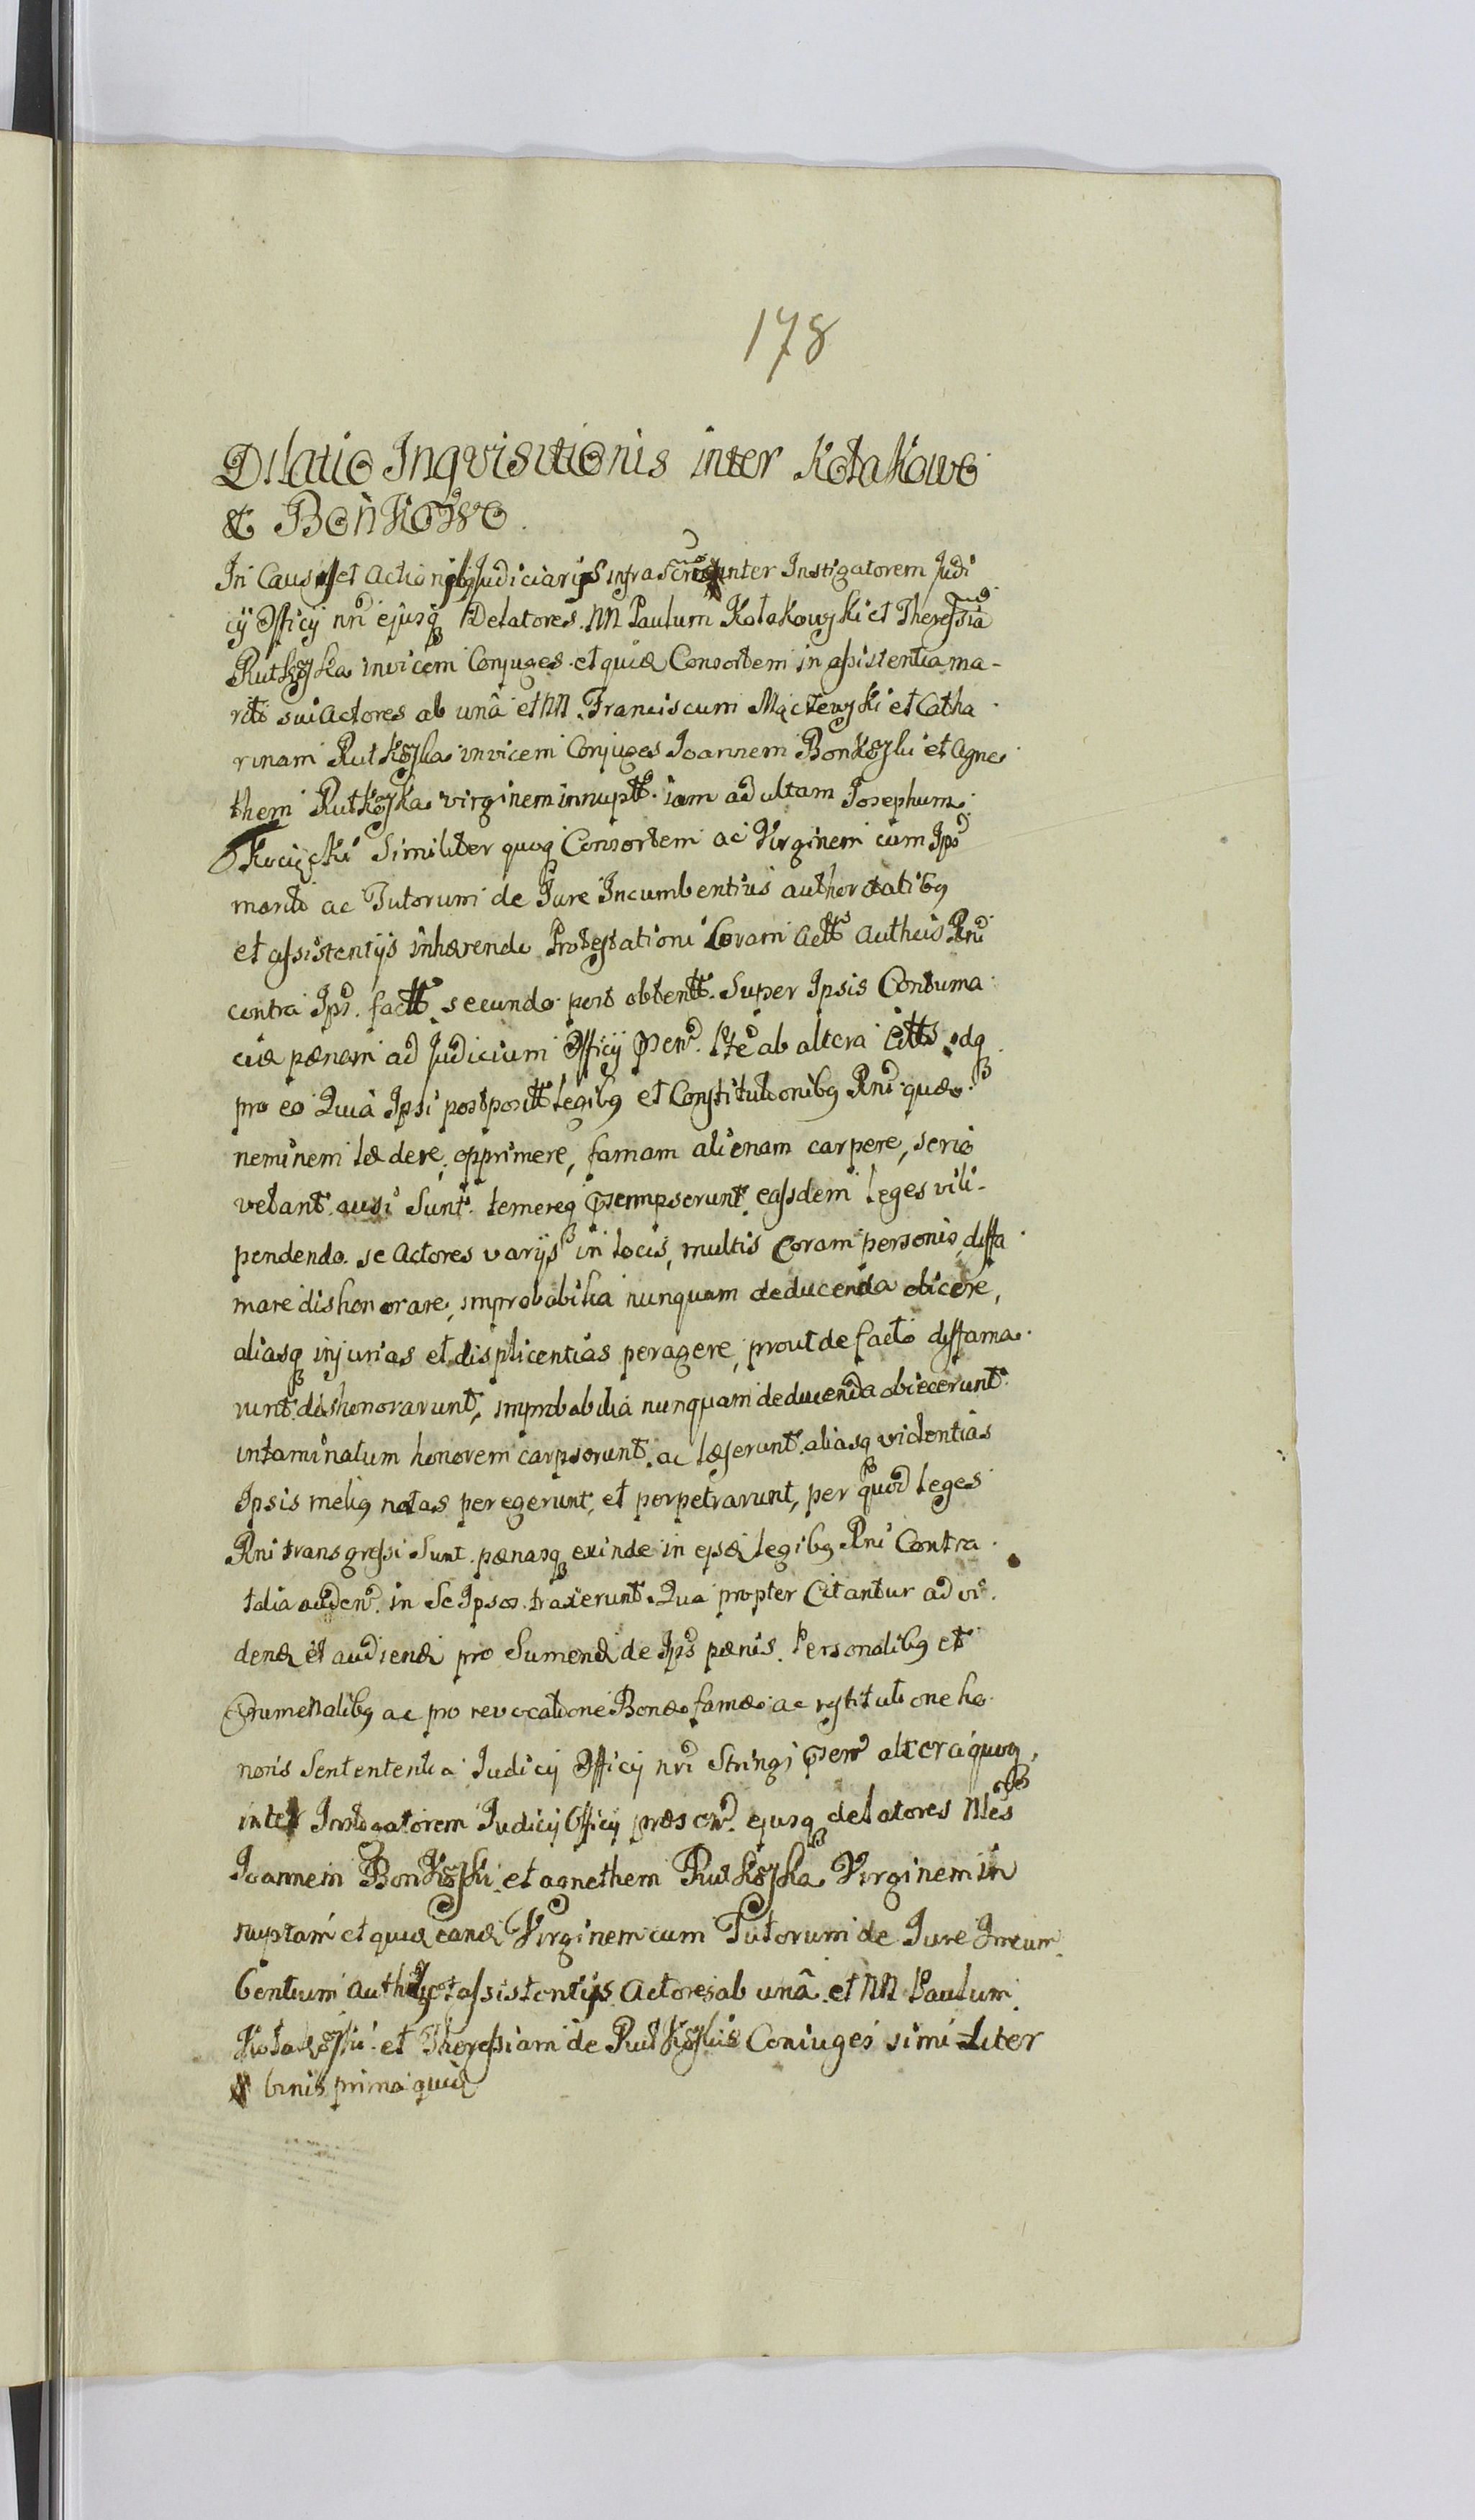 178
Dilatio Inqvisitionis inter Kołakowo
& Bonkowo.
In Causis et Actionibq Judiciarijs infrascrię inter Instigatorem Judi
cij Officij nri ejusq Delatores. NN Paulum Kołakowski et Theressia
Rutkoska invicem Conjuges. et quid Consortem in assistentia ma-
riti sui Actores ab unâ et NN. Franciscum Mącżewski et Catha
rinam Rutkoska invicem Conjuges Joannem Bonkoski et Agne
them Rutkoska virginem innuptt. iam adultam Josephum
Similiter quoq Consortem ac Virginem cum Ips
mariti ac Tutorum de Jure Incumbentius authoritatibq
et assistentijs inhærendo Protestationi Coram Actt Autheis Rni
contra Ips. factt. secundo post obtentt. Super Ipsis Contuma
ciæ pænam ad Judicium Officij ab altera Citts. idq
pro eo Quia Ipsi postposîtt legibq et Constitutionibq Rni quæ
neminem lædere, opprimere, famam alienam carpere, serio
vetant. ausi Sunt. temereq easdem leges vili-
pendendo. se Actores varijs in locis, multis Coram personis, diffa
mare dishonorare, improbabilia nunquam deducenda obicere,
aliasq injurias et displicentias peragere, prout de facto diffama
runt. dishonorarunt, improbabilia nunquam deducenda obiecerunt
intaminatum honorem carpserunt. ac læserunt. aliasq violentias
Ipsis meliq notas peregerunt, et perpetrarunt, per quod leges
Rni transgressi Sunt. pænasq exinde in legibq Rni Contra
talia auden. in Se Ipsos. traxerunt. Qua propter Citantur ad vi.
dend et audiend pro Sumend de Ips pænis. Personalibq et
ac pro revocatione Bonæ famæ ac restitutione ho
noris Sentententia Judicij Officij nri Stringi altera quoq,
inter Instigatorem Judicij Officij ejusq delatores
Joannem Bonkoski. et agnethem Rutkoska Virginem in
nuptam et quid eand Virginem cum Tutorum de Jure Incum
bentium et assistentijs Actores ab unâ. et NN Paulum
Kołakoski. et Theressiam de Rutkoskie Coniuges simi-liter
binis prima quid